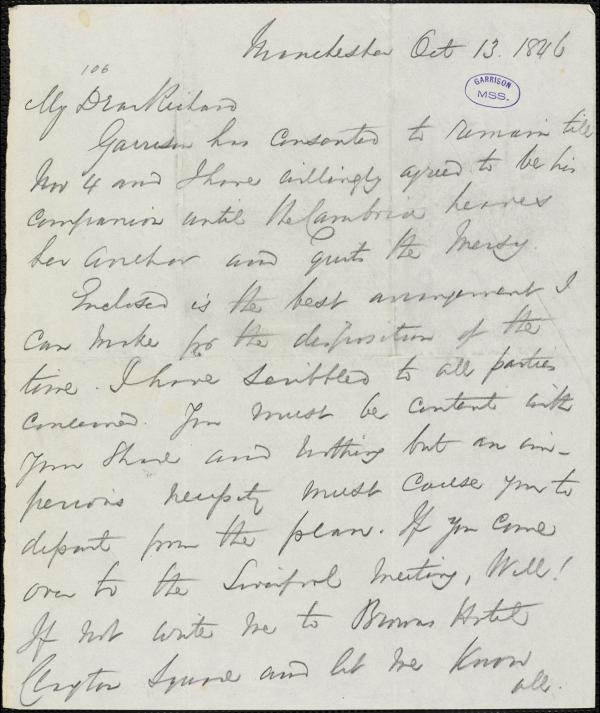 Manchester Oct 13. 1846
106
GARRISON
MSS.
My Dear Richard
Garrison has consented to remain till
Nov 4 and I have willingly agreed to be his
companion until the Cambria heaves
her anchor and quits the Mersey.
Enclosed is the best arrangement I
can make for the disposition of the
time. I have scribbled to all parties
concerned. You must be content with
your share and nothing but an im-
perious necessity must cause you to
depart from the plan. If you come
over to the Liverpool Meeting, Well!
If not write me to Browns Hotel
Clayton Square and let me know
all.